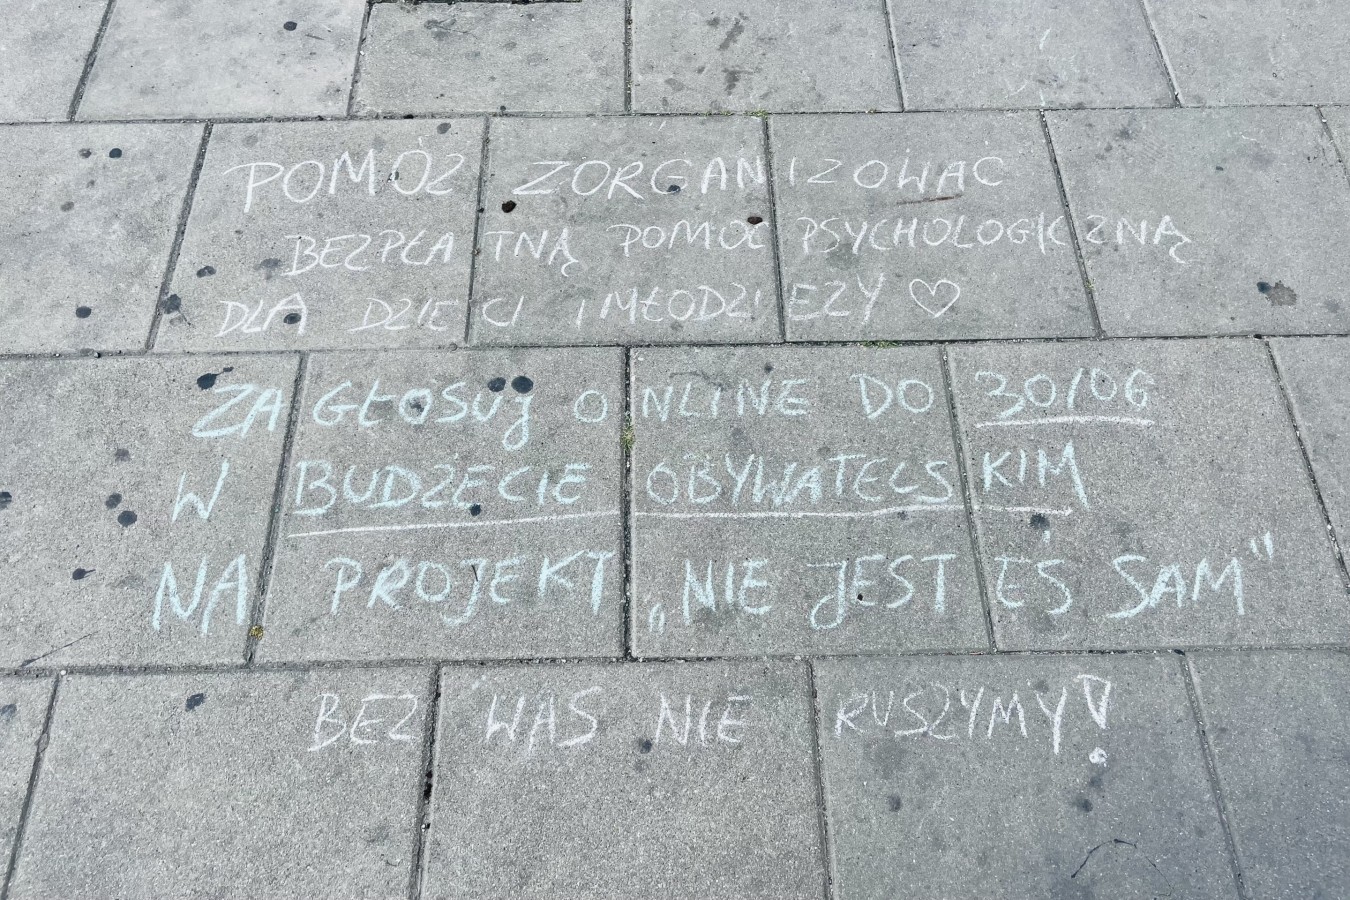 POMÓŻ ZORGANIZOWAĆ
BEZPŁATNĄ POMOC PSYCHOLOGICZNĄ
DLA DZIECI I MŁODZIEŻY ♡
ZAGŁOSUJ ONLINE DO 30/06
W BUDŻECIE OBYWATELSKIM
NA PROJEKT „NIE JESTEŚ SAM"
BEZ WAS NIE RUSZYMY!